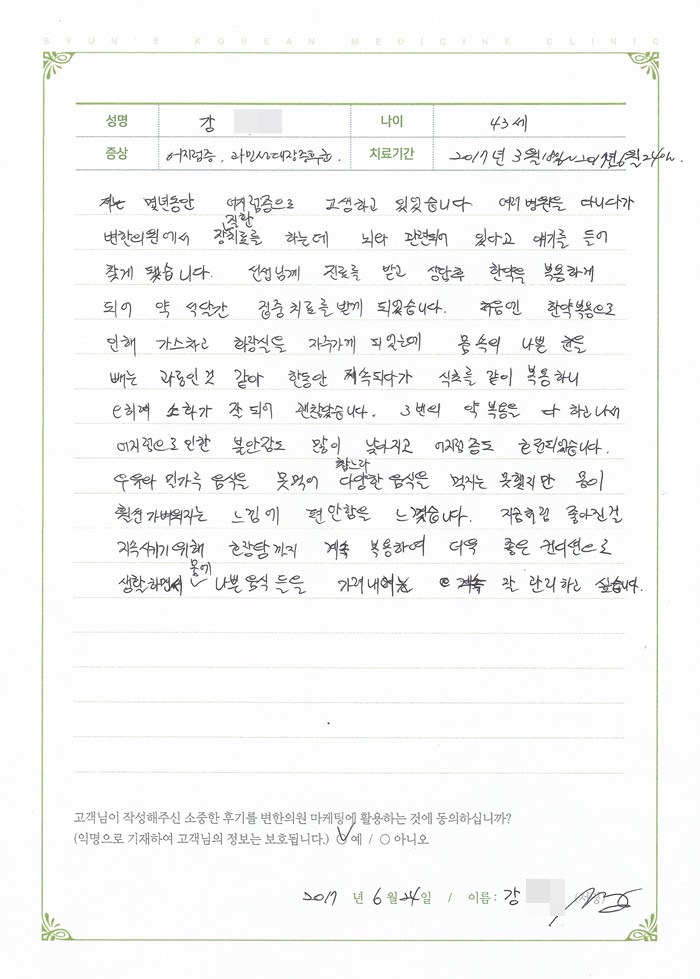 BYUN'S KOREAN MEDICINE CLINIC
성명 강 나이 43세
증상 어지럼증, 과민성대장증후군. 치료기간 2017년 3월 ~ 6월 24일.
저는 몇년동안 어지럼증으로 고생하고 있었습니다 여러 병원을 다니다가
변한의원에서 장치료를 하는데 뇌와 관련되어 있다고 얘기를 듣어
찾게 됐습니다. 선생님께 진료를 받고 상담후 한약을 복용하게
되어 약 석달간 집중치료를 받게 되었습니다. 처음엔 한약복용으로
인해 가스차고 화장실을 자주가게 되었는데 몸속의 나쁜 균을
빼는 과정인것 같아 한동안 지속되다가 식초를 같이 복용하니
오히려 소화가 잘 되어 괜찮았습니다. 3번의 약 복용을 다 하고나서
어지럼으로 인한 불안감도 많이 낮아지고 어지럼증도 호전되었습니다.
우유와 밀가루 음식을 못먹어 참느라 다양한 음식을 먹지는 못했지만 몸이
훨씬 가벼워지는 느낌에 편안함을 느꼈습니다. 지금처럼 좋아진걸
지속시키기 위해 환장탕까지 계속 복용하여 더욱 좋은 컨디션으로
생활하면서 몸에 나쁜 음식 들을 잘 관리하고 싶습니다.
고객님이 작성해주신 소중한 후기를 변한의원 마케팅에 활용하는 것에 동의하십니까?
(익명으로 기재하여 고객님의 정보는 보호됩니다.) ○ 예 / ○ 아니오
2017 년 6 월 24 일 / 이름: 강 (서명)